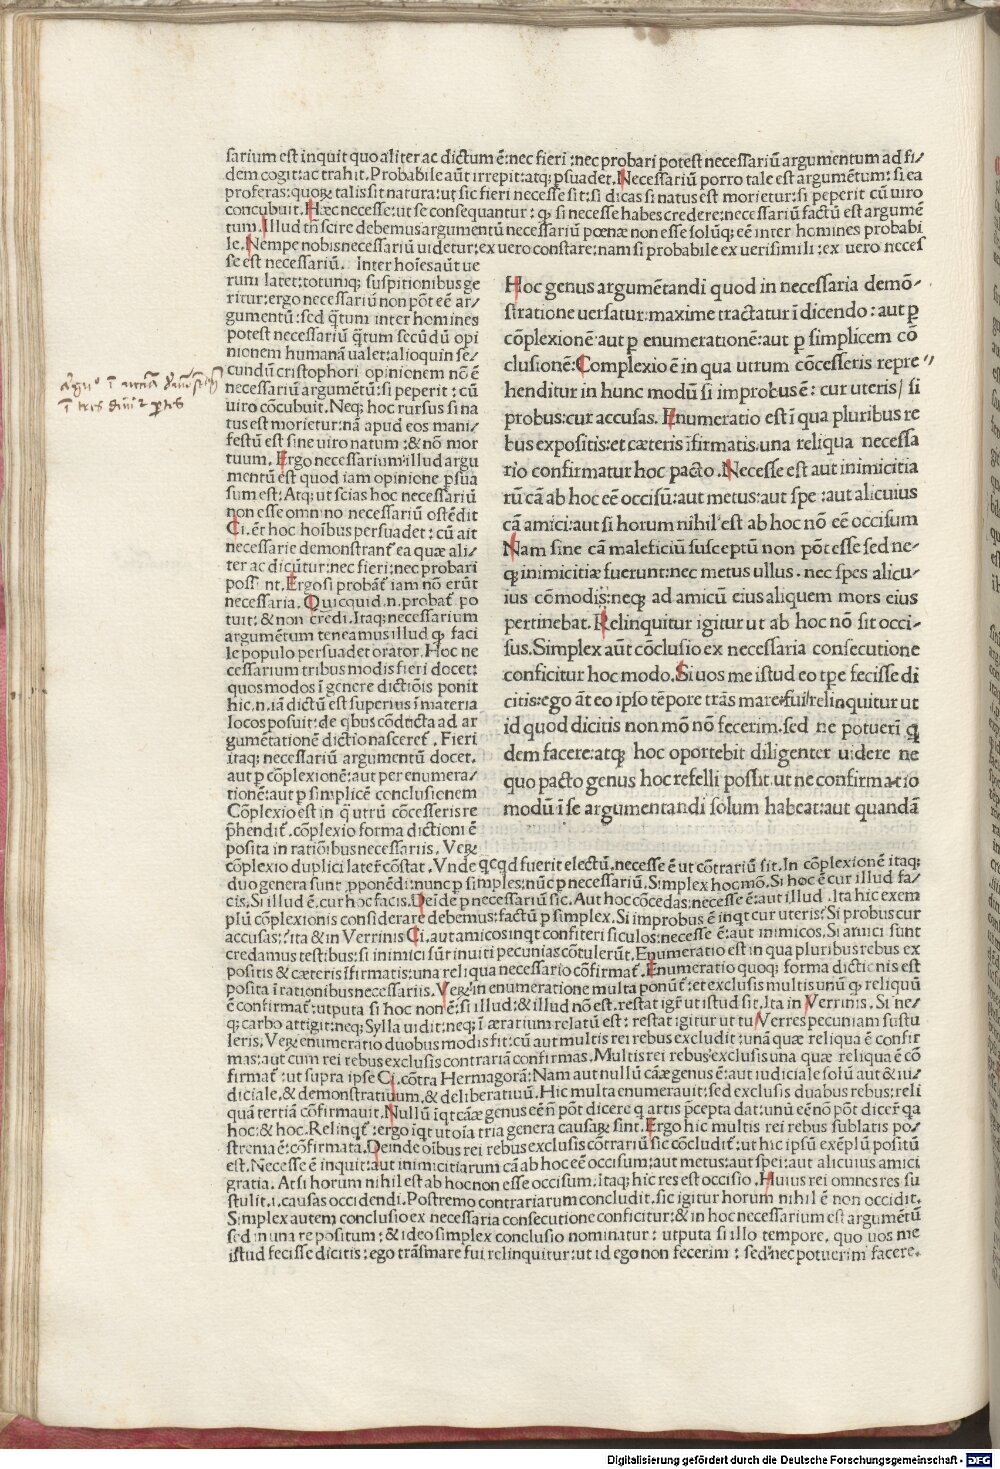 sarium est inquit quo aliter ac dictum ē: nec fieri : nec probari potest necessariū argumentum ad fi/
dem cogit: ac trahit. Probabile aūt irrepit: atq; ꝑsuadet. Necessariū porro tale est argumētum: si ea
proferas: quoꝝ talis sit natura: ut sic fieri necesse sit: si dicas si natus est morietur: si peperit cū uiro
concubuit. Hæc necesse: ut se consequantur: ꝙ si necesse habes credere: necessariū factū est argumē
tum. Illud tn̄ scire debemus argumentū necessariū pœnæ non esse solūq; eē inter homines probabi
le. Nempe nobis necessariū uidetur: ex uero constare: nam si probabile ex uerisimili: ex uero neces
se est necessariū. Inter hoīes aūt ue
rum latet: totumq; suspitionibus ge
ritur: ergo necessariū non pōt eē ar/
gumentū: sed q̄tum inter homines
potest necessariū q̄tum secūdū opi
nionem humanā ualet: alioquin se/
cundū cristophori opinionem nō ē
necessariū argumētū: si peperit : cū
uiro cōcubuit. Neq; hoc rursus si na
tus est morietur: nā apud eos mani/
festū est sine uiro natum : & nō mor
tuum. Ergo necessarium illud argu
mentū est quod iam opinione ꝑsua
sum est: Atq; ut scias hoc necessariū
non esse omnino necessariū ostēdit
Ci. ēt hoc hoībus persuadet : cū ait
necessarie demonstrant̄ ea quæ ali/
ter ac dicūtur: nec fieri: nec probari
possint. Ergo si probāt̄ iam nō erūt
necessaria. Quicquid .n. probat̄ po
tuit: & non crēdi. Itaq; necessarium
argumētum teneamus illud ꝙ faci
le populo persuadet orator. Hoc ne
cessarium tribus modis fieri docet:
quos modos ī genere dictiōis ponit
hic .n. iā dictū est superius ī materia
locos posuit: de q̇bus cōdticta ad ar
gumētationē dictio nasceret̄. Fieri
itaq; necessariū argumentū docet.
aut ꝑ cōplexionē: aut per enumera/
tionē: aut ꝑ simplicē conclusienem
Cōplexio est in q̇ utrū cōcesseris re
p̄hendit̄. cōplexio forma dictioni ē
posita in ratiōibus necessariis. Veꝝ
cōplexio duplici latere cōstat. Vnde qcqd fuerit electū, necesse ē ut cōtrariū sit. In cōplexionē itaq;
duo genera sunt ꝓponēdi: nunc ꝑ simples: nūc ꝑ necessariū. Simplex hoc mō. Si hoc ē cur illud fa/
cis. Si illud ē, cur hoc facis. Deīde ꝑ necessariū sic. Aut hoc cōcedas: necesse ē: aut illud. Ita hic exem
plū cōplexionis considerare debemus: factū ꝑ simplex. Si improbus ē inqt cur uteris? Si probus cur
accusas: ita & in Verrinis Ci. aut amicos inqt confiteri siculos: necesse ē: aut inimicos. Si amici sunt
credamus testibus: si inimici sūt inuiti pecunias cōtulerūt. Enumeratio est in qua pluribus rebus ex
positis & cæteris īfirmatis: una reliqua necessario cōfirmat̄. Enumeratio quoq; forma dictionis est
posita ī rationibus necessariis. Veꝝ in enumeratione multa ponūt̄: et exclusis multis unū ꝙ reliquū
ē confirmat̄: utputa si hoc non ē: si illud: & illud nō est. restat igr̄ ut istud sit. Ita in Verrinis. Si ne/
q; carbo attigit: neq; Sylla uidit: neq; ī ærarium relatū est: restat igitur ut tu Verres pecuniam sustu
leris. Veꝝ enumeratio duobus modis fit: cū aut multis rei rebus excludit: unā quæ reliqua ē confir
mas: aut cum rei rebus exclusis contrariā confirmas. Multis rei rebus exclusis una quæ reliqua ē cō
firmat̄ : ut supra ipse Ci. cōtra Hermagorā: Nam aut nullū cāæ genus ē: aut iudiciale solū aut & iu/
diciale, & demonstratiuum, & deliberatiuū. Hic multa enumerauit: sed exclusis duabus rebus: reli
quā tertiā cōfirmauit. Nullū īqt cāæ genus eē n̄ pōt dicere ꝗ artis p̄cepta dat: unū eē nō pōt dicer̄ ꝗa
hoc: & hoc. Relinqt̄ : ergo īqt ut oīa tria genera causaꝝ sint. Ergo hic multis rei rebus sublatis po/
strema ē: cōfirmata. Deinde oībus rei rebus exclusis cōtrariū sic cōcludit̄: ut hic ipsū exēplū positū
est. Necesse ē inquit: aut inimicitiarum cā ab hoc eē occisum: aut metus: aut spei: aut alicuius amici
gratia. At si horum nihil est ab hoc non esse occisum: itaq; hic res est occisio. Huius rei omnes res su
stulit .i. causas occidendi. Postremo contrariarum concludit. sic igitur horum nihil ē non occidit.
Simplex autem conclusio ex necessaria consecutione conficitur: & in hoc necessarium est argumētū
sed in una re positum : & ideo simplex conclusio nominatur : utputa si illo tempore, quo uos me
istud fecisse dicitis : ego trāsmare fui relinquitur: ut id ego non fecerim : sed nec potuerim facere.
Hoc genus argumētandi quod in necessaria demō/
stratione uersatur: maxime tractatur ī dicendo : aut ꝑ
cōplexionē aut ꝑ enumerationē: aut ꝑ simplicem cō
clusionē: Complexio ē in qua utrum cōcesseris repre
henditur in hunc modū si improbus ē : cur uteris/ si
probus: cur accusas. Enumeratio est ī qua pluribus re
bus expositis: et cæteris īfirmatis. una reliqua necessa
rio confirmatur hoc pacto. Necesse est aut inimicitia
rū cā ab hoc eē occisū: aut metus: aut spe : aut alicuius
cā amici: aut si horum nihil est ab hoc nō eē occisum
Nam sine cā maleficiū susceptū non pōt esse sed ne/
q; inimicitiæ fuerunt: nec metus ullus . nec spes alicu/
ius cōmodis: neq; ad amicū eius aliquem mors eius
pertinebat. Relinquitur igitur ut ab hoc nō sit occi/
sus. Simplex aūt cōclusio ex necessaria consecutione
conficitur hoc modo. Si uos me istud eo tꝑe fecisse di
citis: ego āt eo ipso tēpore trās mare fui/ relinquitur ut
id quod dicitis non mō nō fecerim. sed ne potueri ꝗ
dem facere: atq; hoc oportebit diligenter uidere ne
quo pacto genus hoc refelli possit. ut ne confirmatio
modū ī se argumentandi solum habeat: aut quandā
Digitalisierung gefördert durch die Deutsche Forschungsgemeinschaft - DFG